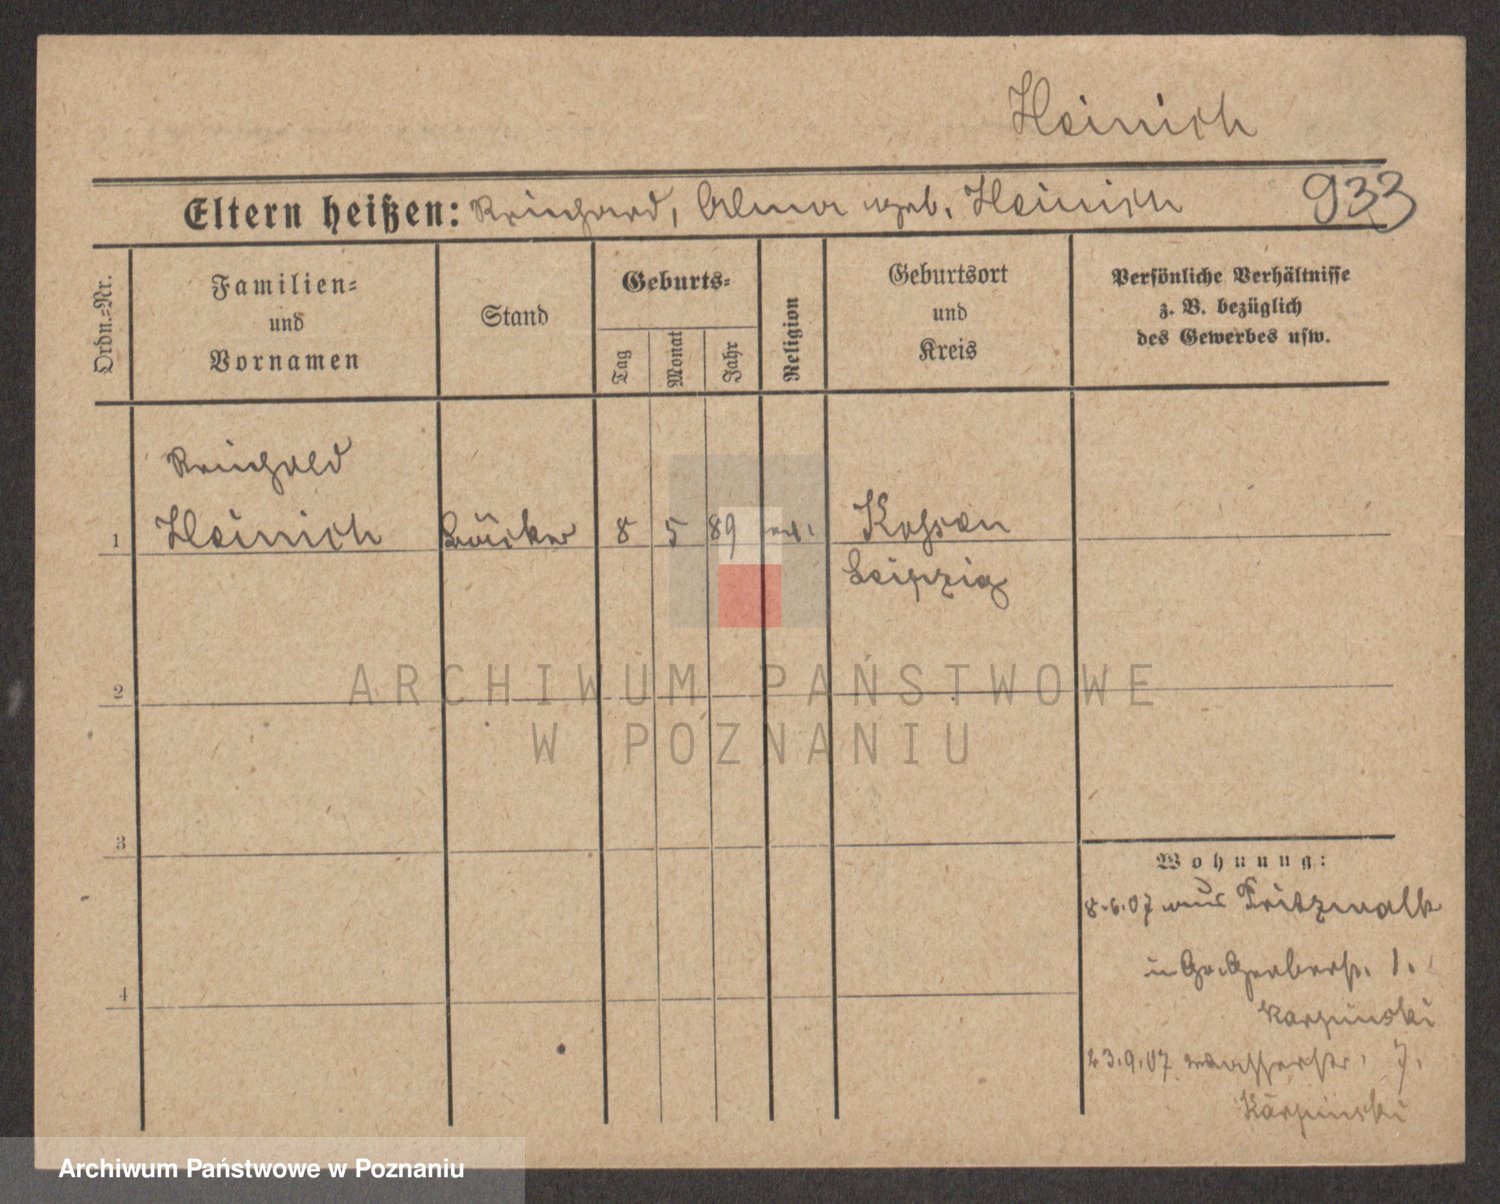 Heinich
Eltern heißen: Reinhard, Alma geb. Heinich
933
Ordn.-Nr.
Familien-
und
Vornamen
Stand
Geburts-
Tag
Monat
Jahr
Religion
Geburtsort
und
Kreis
Persönliche Verhältnisse
z. B. bezüglich
des Gewerbes usw.
Reinhold
1 Heinich Bäcker 8 5 89 ev. Kossen
Leipzig
2
3
4
Wohnung:
8.6.07 aus Pritzwalk
in Gr. Gerberstr. 1.
Karpinski
23.9.07 Wasserstr. 7.
Karpinski
ARCHIWUM PAŃSTWOWE
W POZNANIU
Archiwum Państwowe w Poznaniu